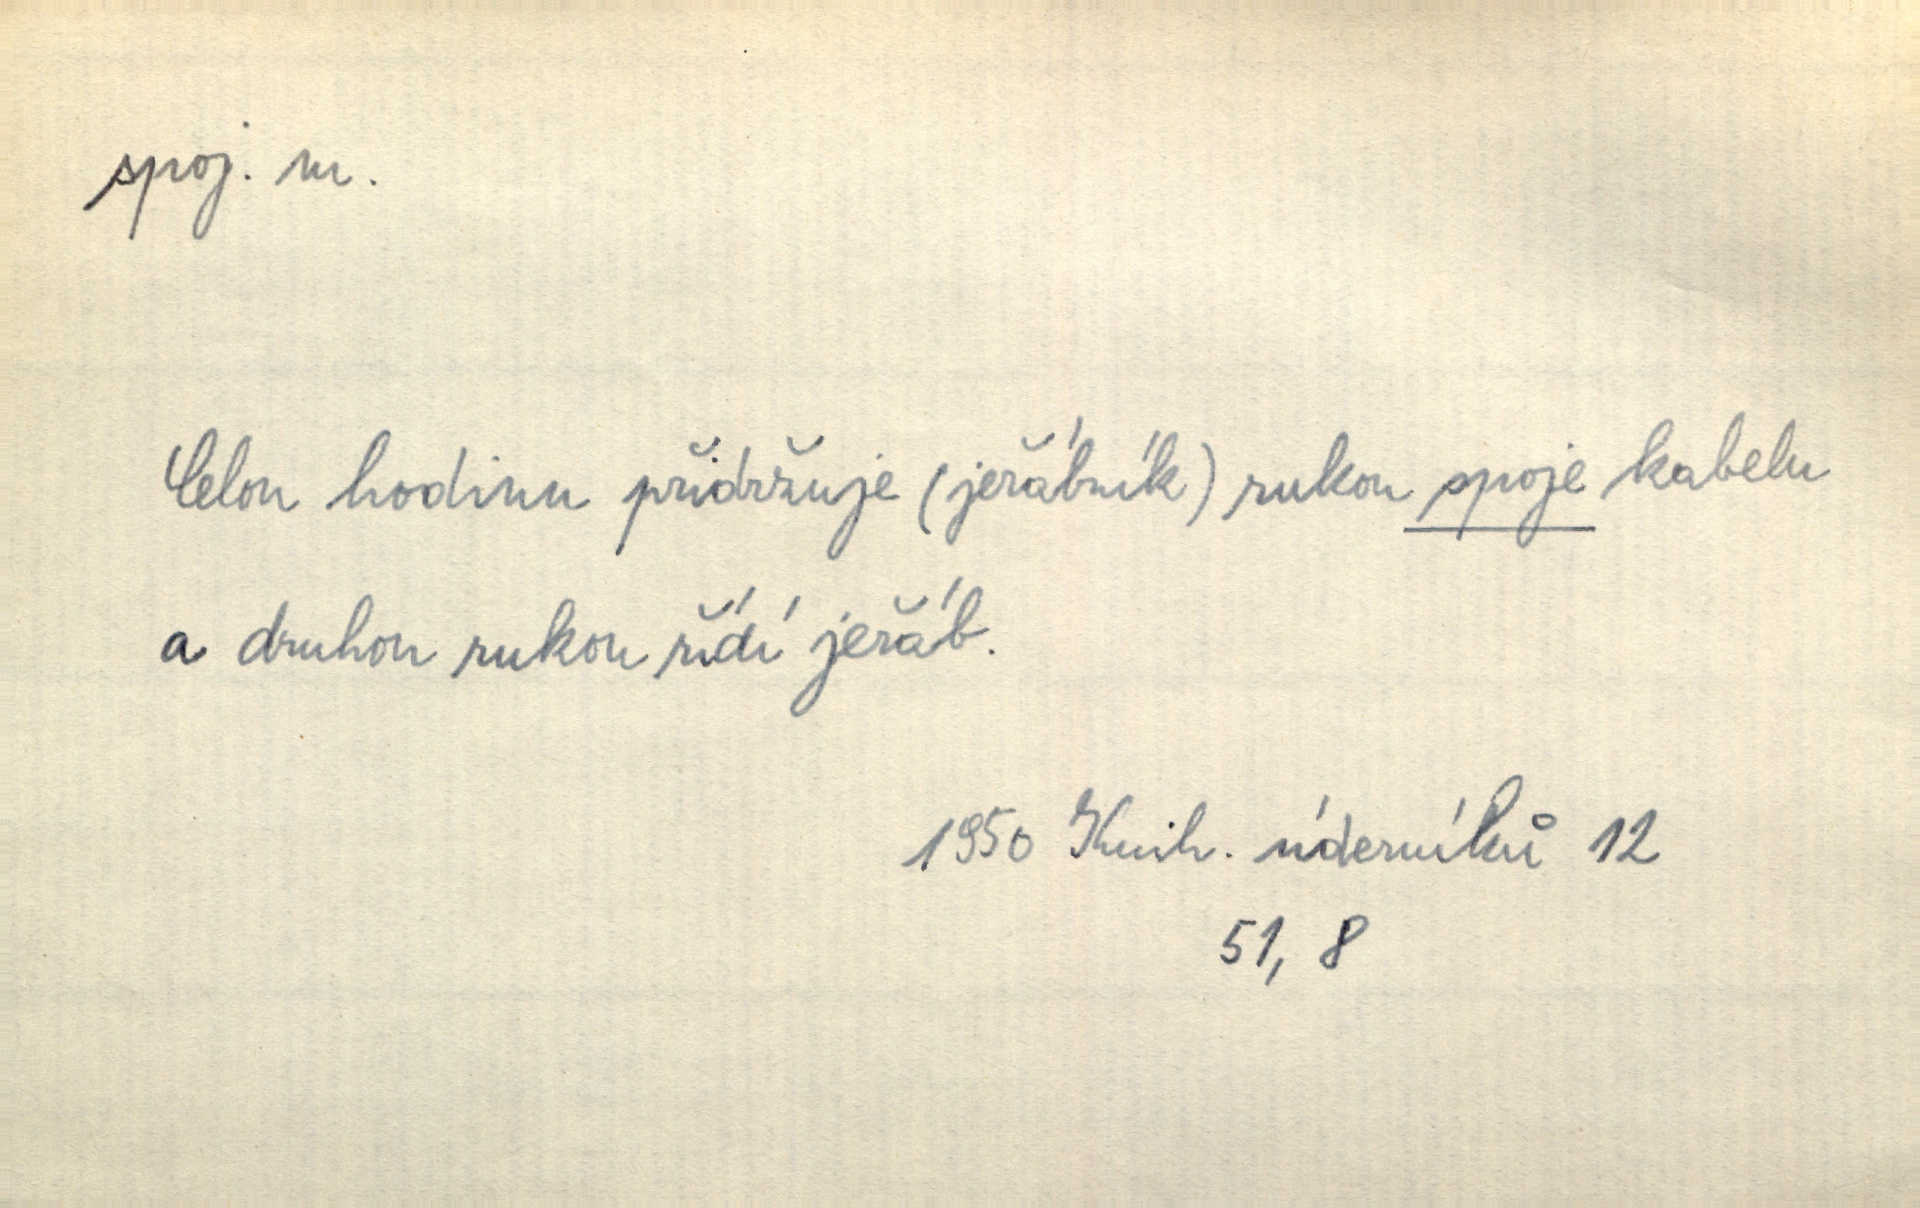 spoj. m.
Celou hodinu přidržuje (jeřábník) rukou spoje kabelu
a druhou rukou řídí jeřáb.
1950 Knih. úderníků 12
51, 8